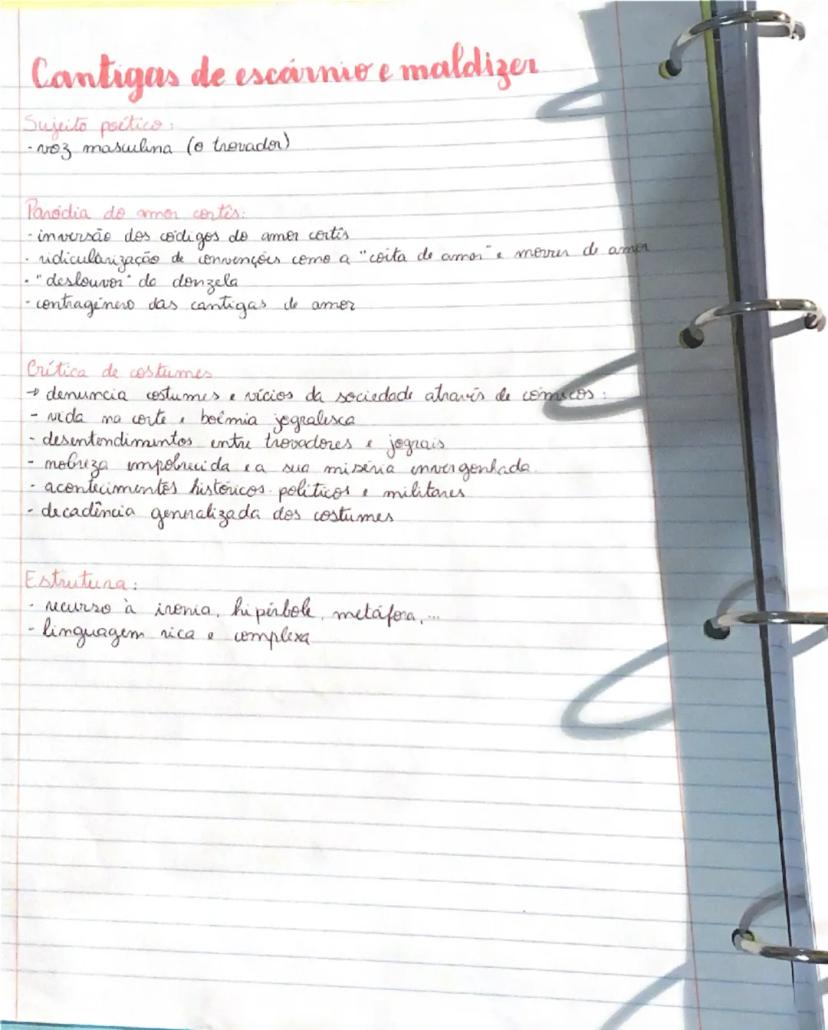 Cantigas de escárnio e maldizer
Sujeito poético:
- voz masculina (o trovador)
Paródia do amor cortês:
- inversão dos códigos do amor cortês
- ridicularização de convenções como a "coita de amor" e morrer de amor
- "deslouvor" da donzela
- contragénero das cantigas de amor
Crítica de costumes
→ denuncia costumes e vícios da sociedade através de cómicos:
- vida na corte e boémia jogralesca
- desentendimentos entre trovadores e jograis
- nobreza empobrecida e a sua miséria envergonhada
- acontecimentos históricos políticos e militares
- decadência generalizada dos costumes
Estrutura:
- recurso à ironia, hipérbole, metáfora,...
- linguagem rica e complexa